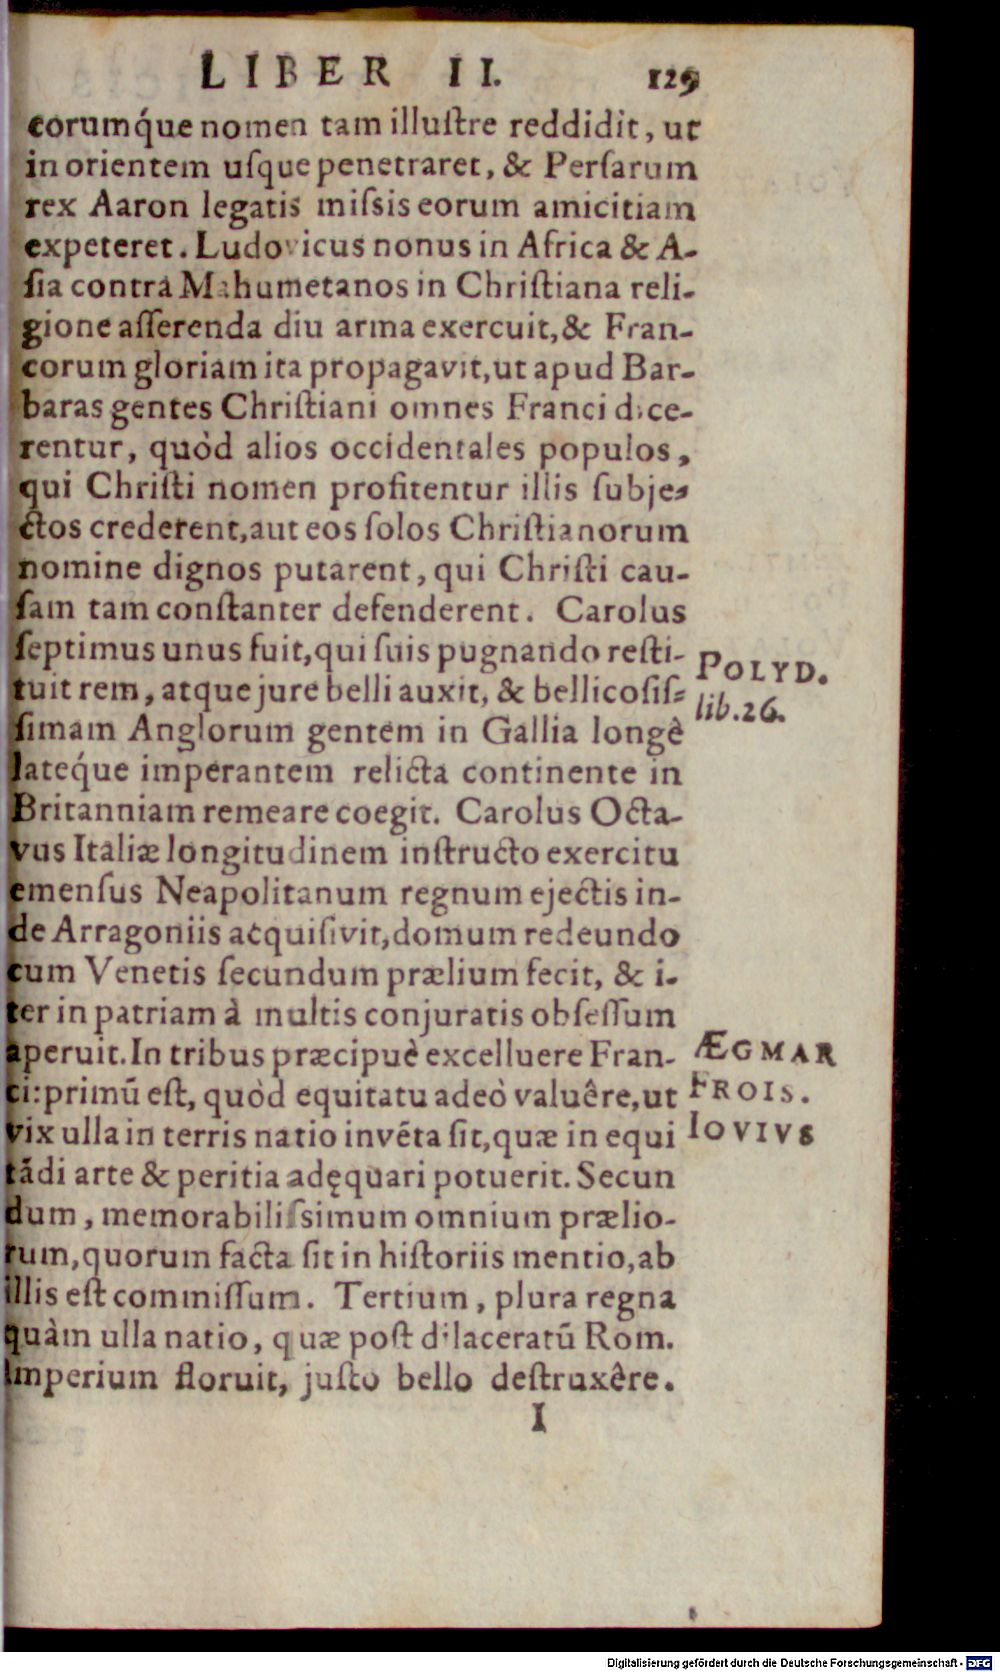 LIBER II. 129
eorumq́ue nomen tam illuſtre reddidit, ut
in orientem uſque penetraret, & Perſarum
rex Aaron legatis miſsis eorum amicitiam
expeteret. Ludovicus nonus in Africa & A-
ſia contrà Mahumetanos in Chriſtiana reli-
gione aſſerenda diu arma exercuit, & Fran-
corum gloriam ita propagavit, ut apud Bar-
baras gentes Chriſtiani omnes Franci dice-
rentur, quòd alios occidentales populos,
qui Chriſti nomen profitentur illis ſubje-
ctos crederent, aut eos ſolos Chriſtianorum
nomine dignos putarent, qui Chriſti cau-
ſam tam conſtanter defenderent. Carolus
ſeptimus unus fuit, qui ſuis pugnando reſti-
POLYD.
tuit rem, atque jure belli auxit, & bellicoſiſ-
lib. 26.
ſimam Anglorum gentem in Gallia longè
lateq́ue imperantem relicta continente in
Britanniam remeare coegit. Carolus Octa-
vus Italiæ longitudinem inſtructo exercitu
emenſus Neapolitanum regnum ejectis in-
de Arragoniis acquiſivit, domum redeundo
cum Venetis ſecundum prælium fecit, & i-
ter in patriam à multis conjuratis obſeſſum
aperuit. In tribus præcipuè excelluere Fran-
ÆGMAR
ci: primũ eſt, quòd equitatu adeò valuêre, ut
FROIS.
vix ulla in terris natio invẽta ſit, quæ in equi
IOVIVS
tãdi arte & peritia adęquari potuerit. Secun
dum, memorabiliſsimum omnium prælio-
rum, quorum facta ſit in hiſtoriis mentio, ab
illis eſt commiſſum. Tertium, plura regna
quàm ulla natio, quæ poſt dilaceratũ Rom.
Imperium floruit, juſto bello deſtruxêre.
I
Digitalisierung gefördert durch die Deutsche Forschungsgemeinschaft - DFG